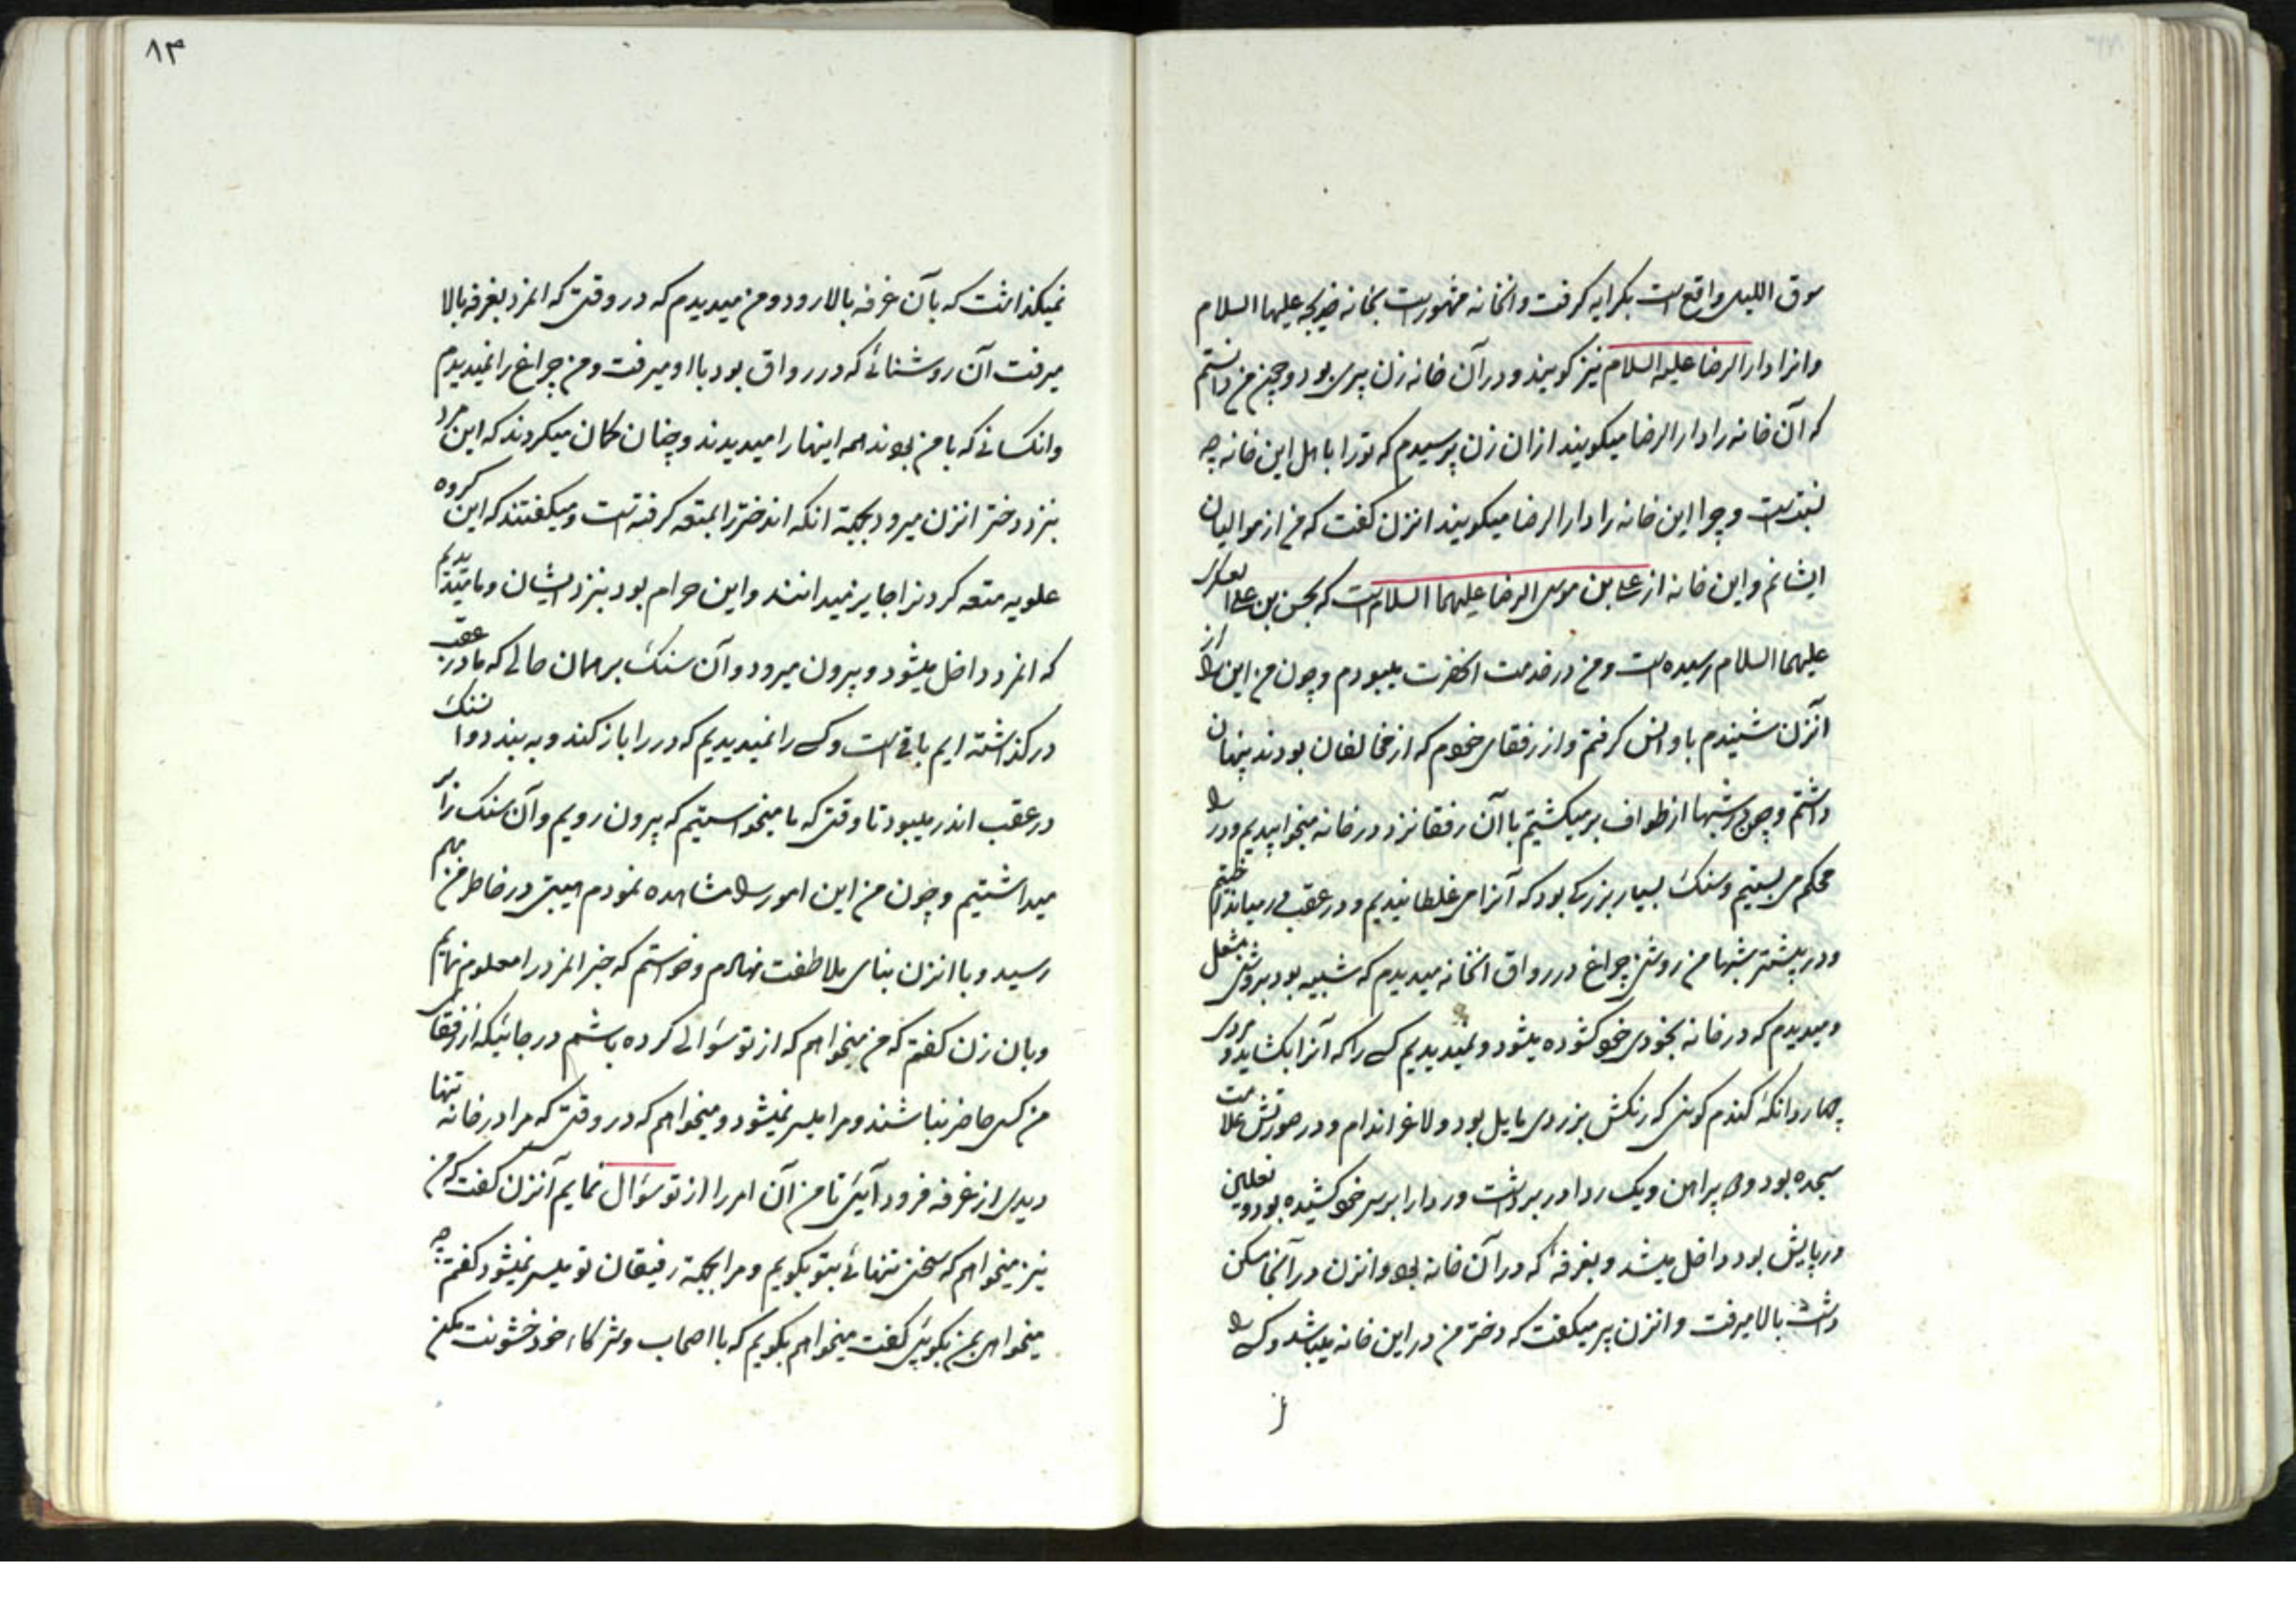 سوق اللیل واقع است بکرایه کرفت و انخانه مشهورست بخانه خدیجه علیها السلام
وانرا دار الرضا علیه السلام نیز کویند و در آن خانه زن پیری بود و چون من دانستم
که آن خانه را دار الرضا میکویند از ان زن پرسیدم که تو را با اهل این خانه چه
نسبتست و چرا این خانه را دار الرضا میکویند انزن کفت که من از موالیان
ایشانم و این خانه از علی بن موسی الرضا علیهما السلام است که بحسن بن علی العسکری
علیهما السلام رسیده است و من در خدمت انحضرت میبودم و چون من این را از
آنزن شنیدم باو انس کرفتم و از رفقای خود که از مخالفان بودند پنهان
داشتم و چون شبها از طواف بر میکشتیم با آن رفقا نزد در خانه میخوابیدیم و در را
محکم می بستیم و سنک بسیار بزرکی بود که آنرا می غلطانیدیم و در عقب در میانداختیم
و در بیشتر شبها من روشنی چراغ در رواق انخانه میدیدم که شبیه بود بروشنی مشعل
و میدیدم که در خانه بخودی خود کشوده میشود و نمیدیدیم کسی را که آنرا بکشاید و مردی
چهار دانکهٔ کندم کونی که رنکش بزردی مایل بود و لاغر اندام و در صورتش علامت
سجده بود و دو پیراهن و یک ردا در بر داشت و ردا را بر سر خود کشیده بود و نعلین
در پایش بود داخل میشد و بغرفهٔ که در آن خانه بود و انزن در آنجا مسکن
داشت بالا میرفت و انزن پیر میکفت که دختر من در این خانه میباشد و کسی را
نمیکذاشت که بآن غرفه بالا رود و من میدیدم که در وقتی که انمرد بغرفه بالا
میرفت آن روشنائی که در رواق بود با او میرفت و من چراغ را نمیدیدم
و انکسانی که با من بودند همه اینها را میدیدند و چنان کمان میکردند که این مرد
بنزد دختر انزن میرود بجهة انکه اندختر را بمتعه کرفته است و میکفتند که این کروه
علویه متعه کردنرا جایز میدانند و این حرام بود بنزد ایشان و ما میدیدیم
که انمرد داخل میشود و بیرون میرود و آن سنک بر همان حالی که ما در عقب
در کذاشته ایم باقی است و کسی را نمیدیدیم که در را باز کند و به بندد و ان سنک
در عقب اندر میبود تا وقتی که ما میخواستیم که بیرون رویم و آن سنک را بر
میداشتیم و چون من این امور را مشاهده نمودم هیبتی در خاطر من بهم
رسید و با انزن بنای ملاطفت نهادم و خواستم که خبر انمرد را معلوم نمایم
و بان زن کفتم که من میخواهم که از تو سؤالی کرده باشم در جائیکه از رفقای
من کسی حاضر نباشند و مرا میسر نمیشود و میخواهم که در وقتی که مرا در خانه تنها
دیدی از غرفه فرود آیئی تا من آن امر را از تو سؤال نمایم آنزن کفت که من
نیز میخواهم که سخنی تنهائی بتو بکویم و مرا بجهة رفیقان تو میسر نمیشود کفتم چه
میخواهی بمن بکوئی کفت میخواهم بکویم که با اصحاب و شرکاء خود خشونت مکن
۸۳